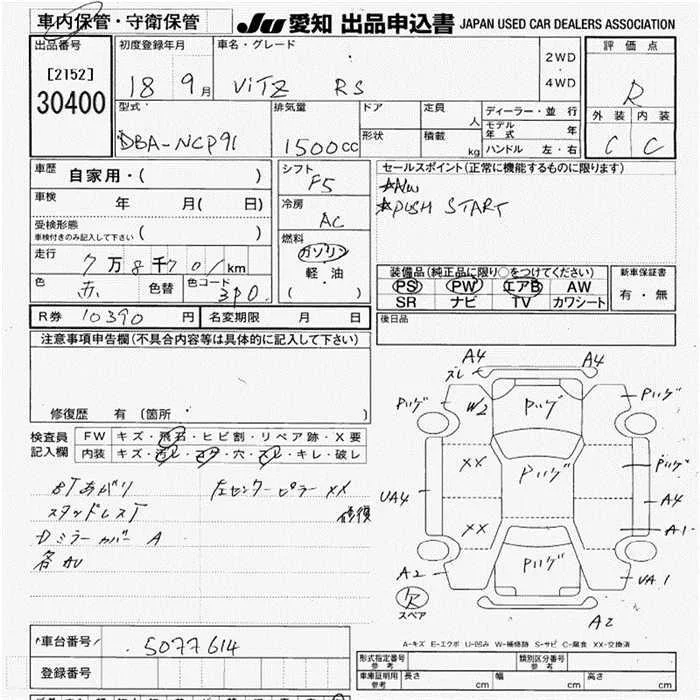 車内保管・守衛保管
JU 愛知 出品申込書 JAPAN USED CAR DEALERS ASSOCIATION
出品番号 初度登録年月 車名・グレード 評価点
[2152] 18 9月 ViTZ RS 2WD・4WD R
30400 型式 排気量 ドア 定員 人 ディーラー・並行 外装 内装
DBA-NCP91 1500cc 形状 積載 kg モデル年式 年 C C
ハンドル 左・右
車歴 自家用・( ) シフト F5 セールスポイント(正常に機能するものに限ります)
車検 年 月( 日) 冷房 AC ☆AW
受検形態 ( ) ☆PUSH START
車検付きのみ記入して下さい
走行 7万8千701km 燃料 ガソリン 装備品(純正品に限り○をつけてください) 新車保証書
色 赤 色替 色コード 3P0 軽・油 PS PW エアB AW 有・無
( ) SR ナビ TV カワシート
R券 10390 円 名変期限 月 日 後日品
注意事項申告欄(不具合内容等は具体的に記入して下さい)
修復歴 有(箇所 )
検査員 FW キズ・飛石・ヒビ割・リペア跡・X要
記入欄 内装 キズ・汚レ・コゲ・穴・スレ・キレ・破レ
左センターピラー XX
スタッドレスT 修復
Dミラーカバー A
A4 A4
ズレ
W2
XX
UA4 A4
XX A1
A2 UA1
欠
スペア
A2
A-キズ E-エクボ U-凹み W-補修跡 S-サビ C-腐食 XX-交換済
車台番号 5077614
登録番号
形式指定番号 参考 類別区分番号 参考
車庫証明用 参考 長さ cm 幅 cm 高さ cm